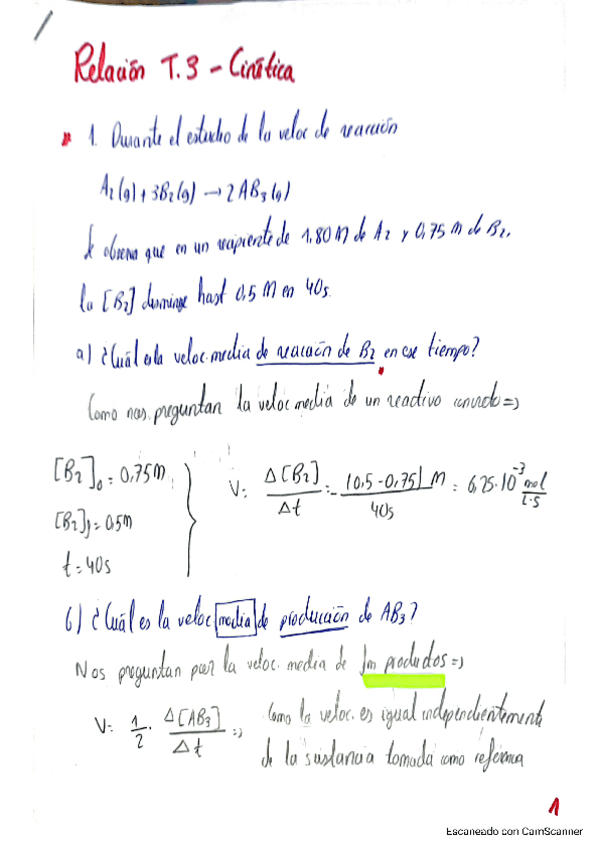 Relación T.3 - Cinética
1. Durante el estudio de la veloc de reacción
A2(g) + 3B2(g) → 2AB3(g)
Se observa que en un recipiente de 1,80 M de A2 y 0,75 M de B2,
la [B2] disminuye hast 0,5 M en 40s.
a) ¿Cuál es la veloc. media de reacción de B2 en ese tiempo?
Como nos preguntan la veloc media de un reactivo =>
[B2]0 = 0,75 M
[B2]f = 0,5 M
t = 40s
V = Δ[B2] / Δt = - (0,5 - 0,75) M / 40s = 6,25·10^-3 mol / L·s
b) ¿Cuál es la veloc media de producción de AB3?
Nos preguntan por la veloc. media de un producto =>
V = 1/2 · Δ[AB3] / Δt =>
Como la veloc. es igual independientemente
de la sustancia tomada como referencia
1
Escaneado con CamScanner